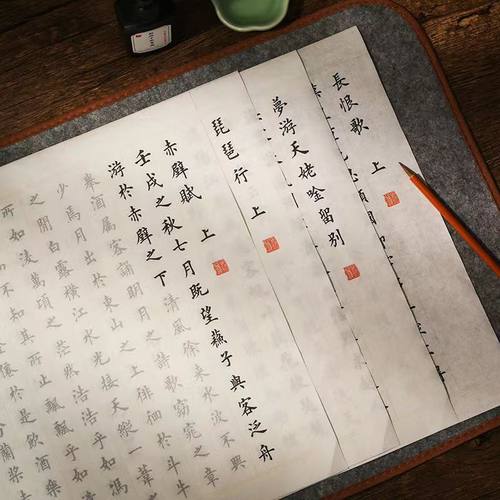 長恨歌 上
夢游天姥唫留别
琵琶行 上
赤壁賦 上
壬戌之秋七月既望蘇子與客泛舟
游於赤壁之下清風徐来水波不興
舉酒属客誦明月之詩歌窈窕之章
少焉月出於東山之上徘徊於斗牛
之間白露横江水光接天縱一葦
所如凌萬頃之茫然浩浩乎如馮
不知其所止飄飄乎如
於是飲酒樂
蘭槳